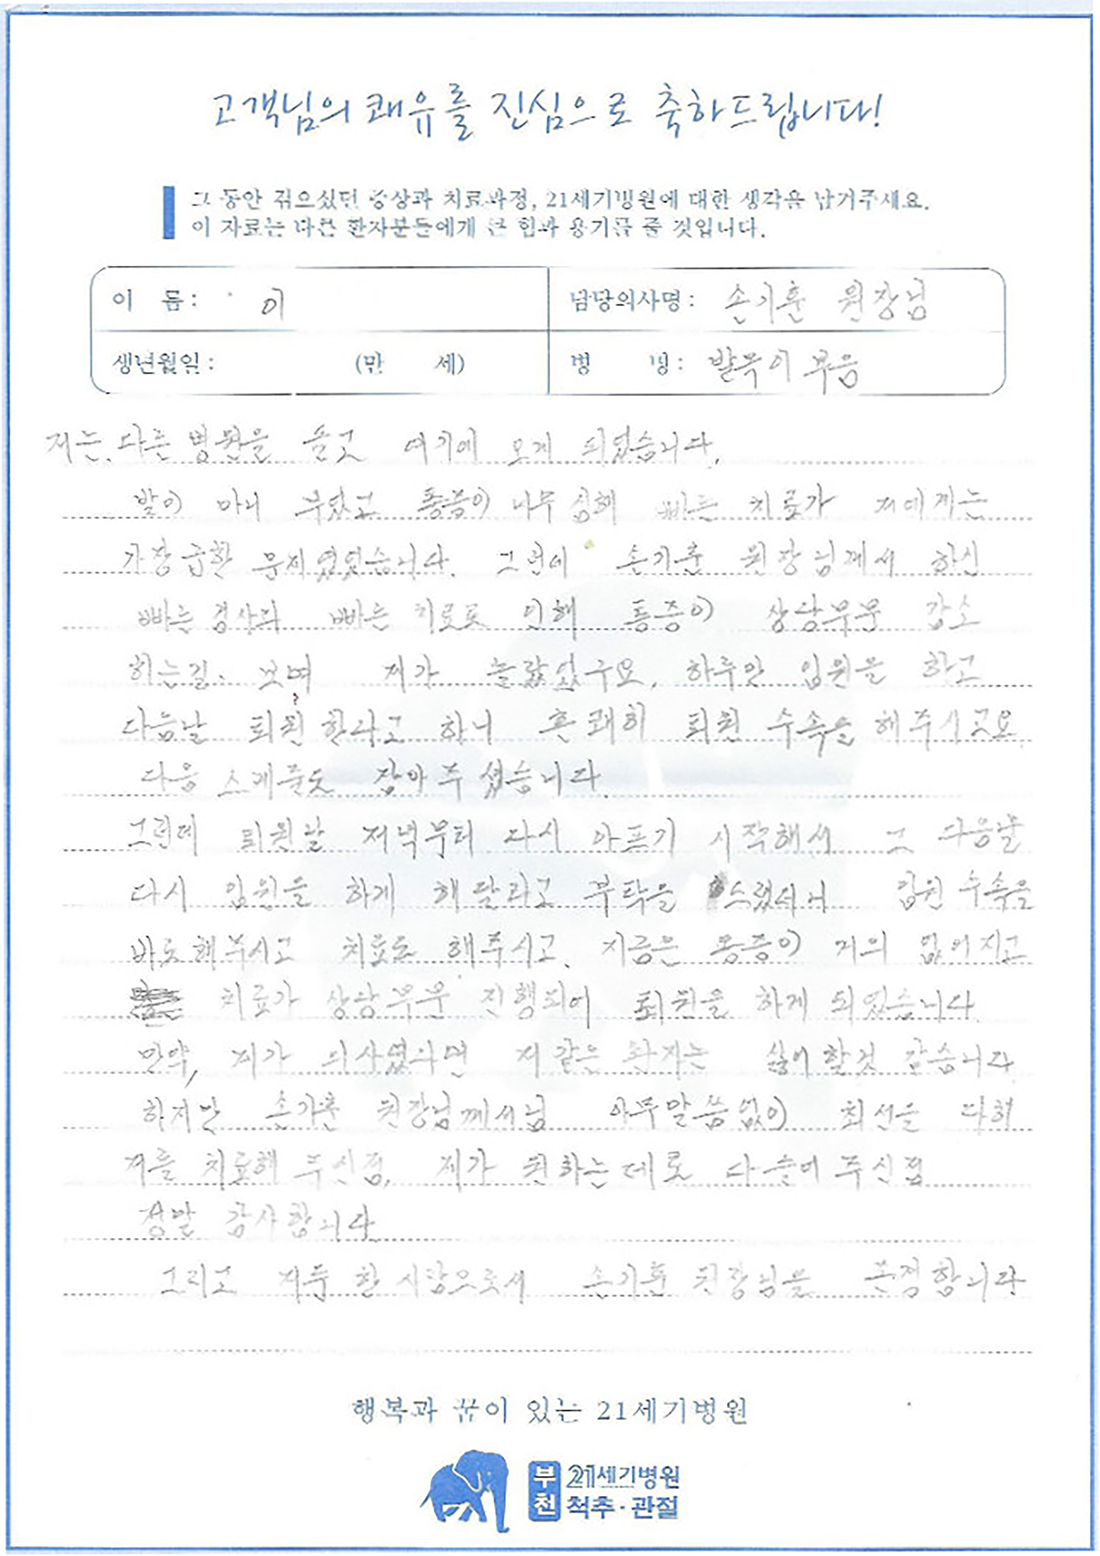 고객님의 쾌유를 진심으로 축하드립니다!
그 동안 겪으셨던 증상과 치료과정, 21세기병원에 대한 생각을 남겨주세요.
이 자료는 다른 환자분들에게 큰 힘과 용기를 줄 것입니다.
이 름 : 이 담당의사명 : 손기훈 원장님
생년월일 : (만 세) 병 명 : 발목이 부음
저는, 다른 병원을 돌고 여기에 오게 되었습니다.
발이 마니 부었고 통증이 너무 심해 빠른 치료가 저에게는
가장 급한 문제였었습니다. 그런데 손기훈 원장님께서 하신
빠른 검사와 빠른 치료로 인해 통증이 상당부분 감소
하는걸 보며 저가 놀랐었구요, 하루만 입원을 하고
다음날 퇴원 한다고 하니 흔쾌히 퇴원 수속을 해주시고요
다음 스케쥴도 잡아주셨습니다
그런데 퇴원날 저녁부터 다시 아프기 시작해서 그 다음날
다시 입원을 하게 해달라고 부탁을 드렸더니 입원 수속을
바로 해주시고 치료도 해주시고, 지금은 통증이 거의 없어지고
치료가 상당부분 진행되어 퇴원을 하게 되었습니다.
만약, 저가 의사였다면 저 같은 환자는 싫어 할것 같습니다
하지만 손기훈 원장님께서님 아무말씀없이 최선을 다해
저를 치료해 주신점, 제가 원하는데로 다 들어 주신점
정말 감사합니다
그리고 저두 한 사람으로서 손기훈 원장님을 존경합니다
행복과 꿈이 있는 21세기병원
부천 21세기병원
척추·관절